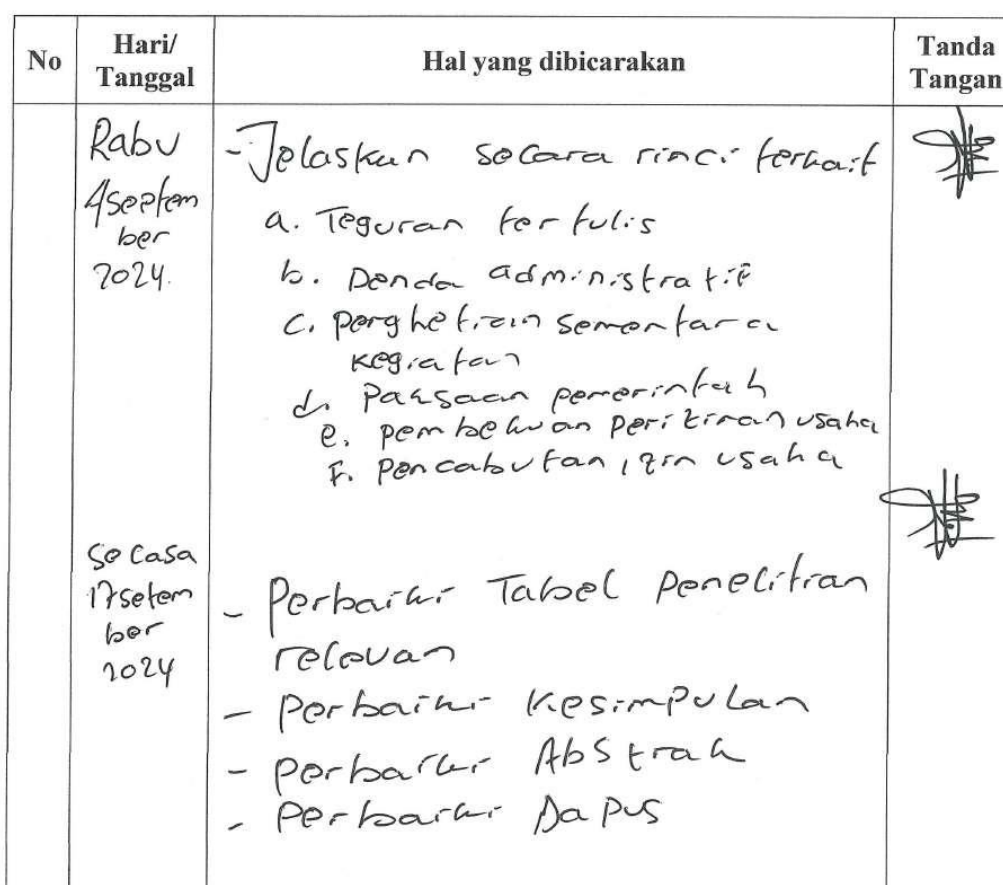 No
Hari/
Tanggal
Hal yang dibicarakan
Tanda
Tangan
Rabu
4 September
2024.
- Jelaskan secara rinci terkait
a. Teguran tertulis
b. Denda administratif
c. penghetian sementara
kegiatan
d. Paksaan pemerintah
e. pembekuan perizinan usaha
F. Pencabutan izin usaha
Selasa
17 setem
ber
2024
- Perbaiki Tabel penelitian
relevan
- Perbaiki Kesimpulan
- Perbaiki Abstrak
- Perbaiki Dapus